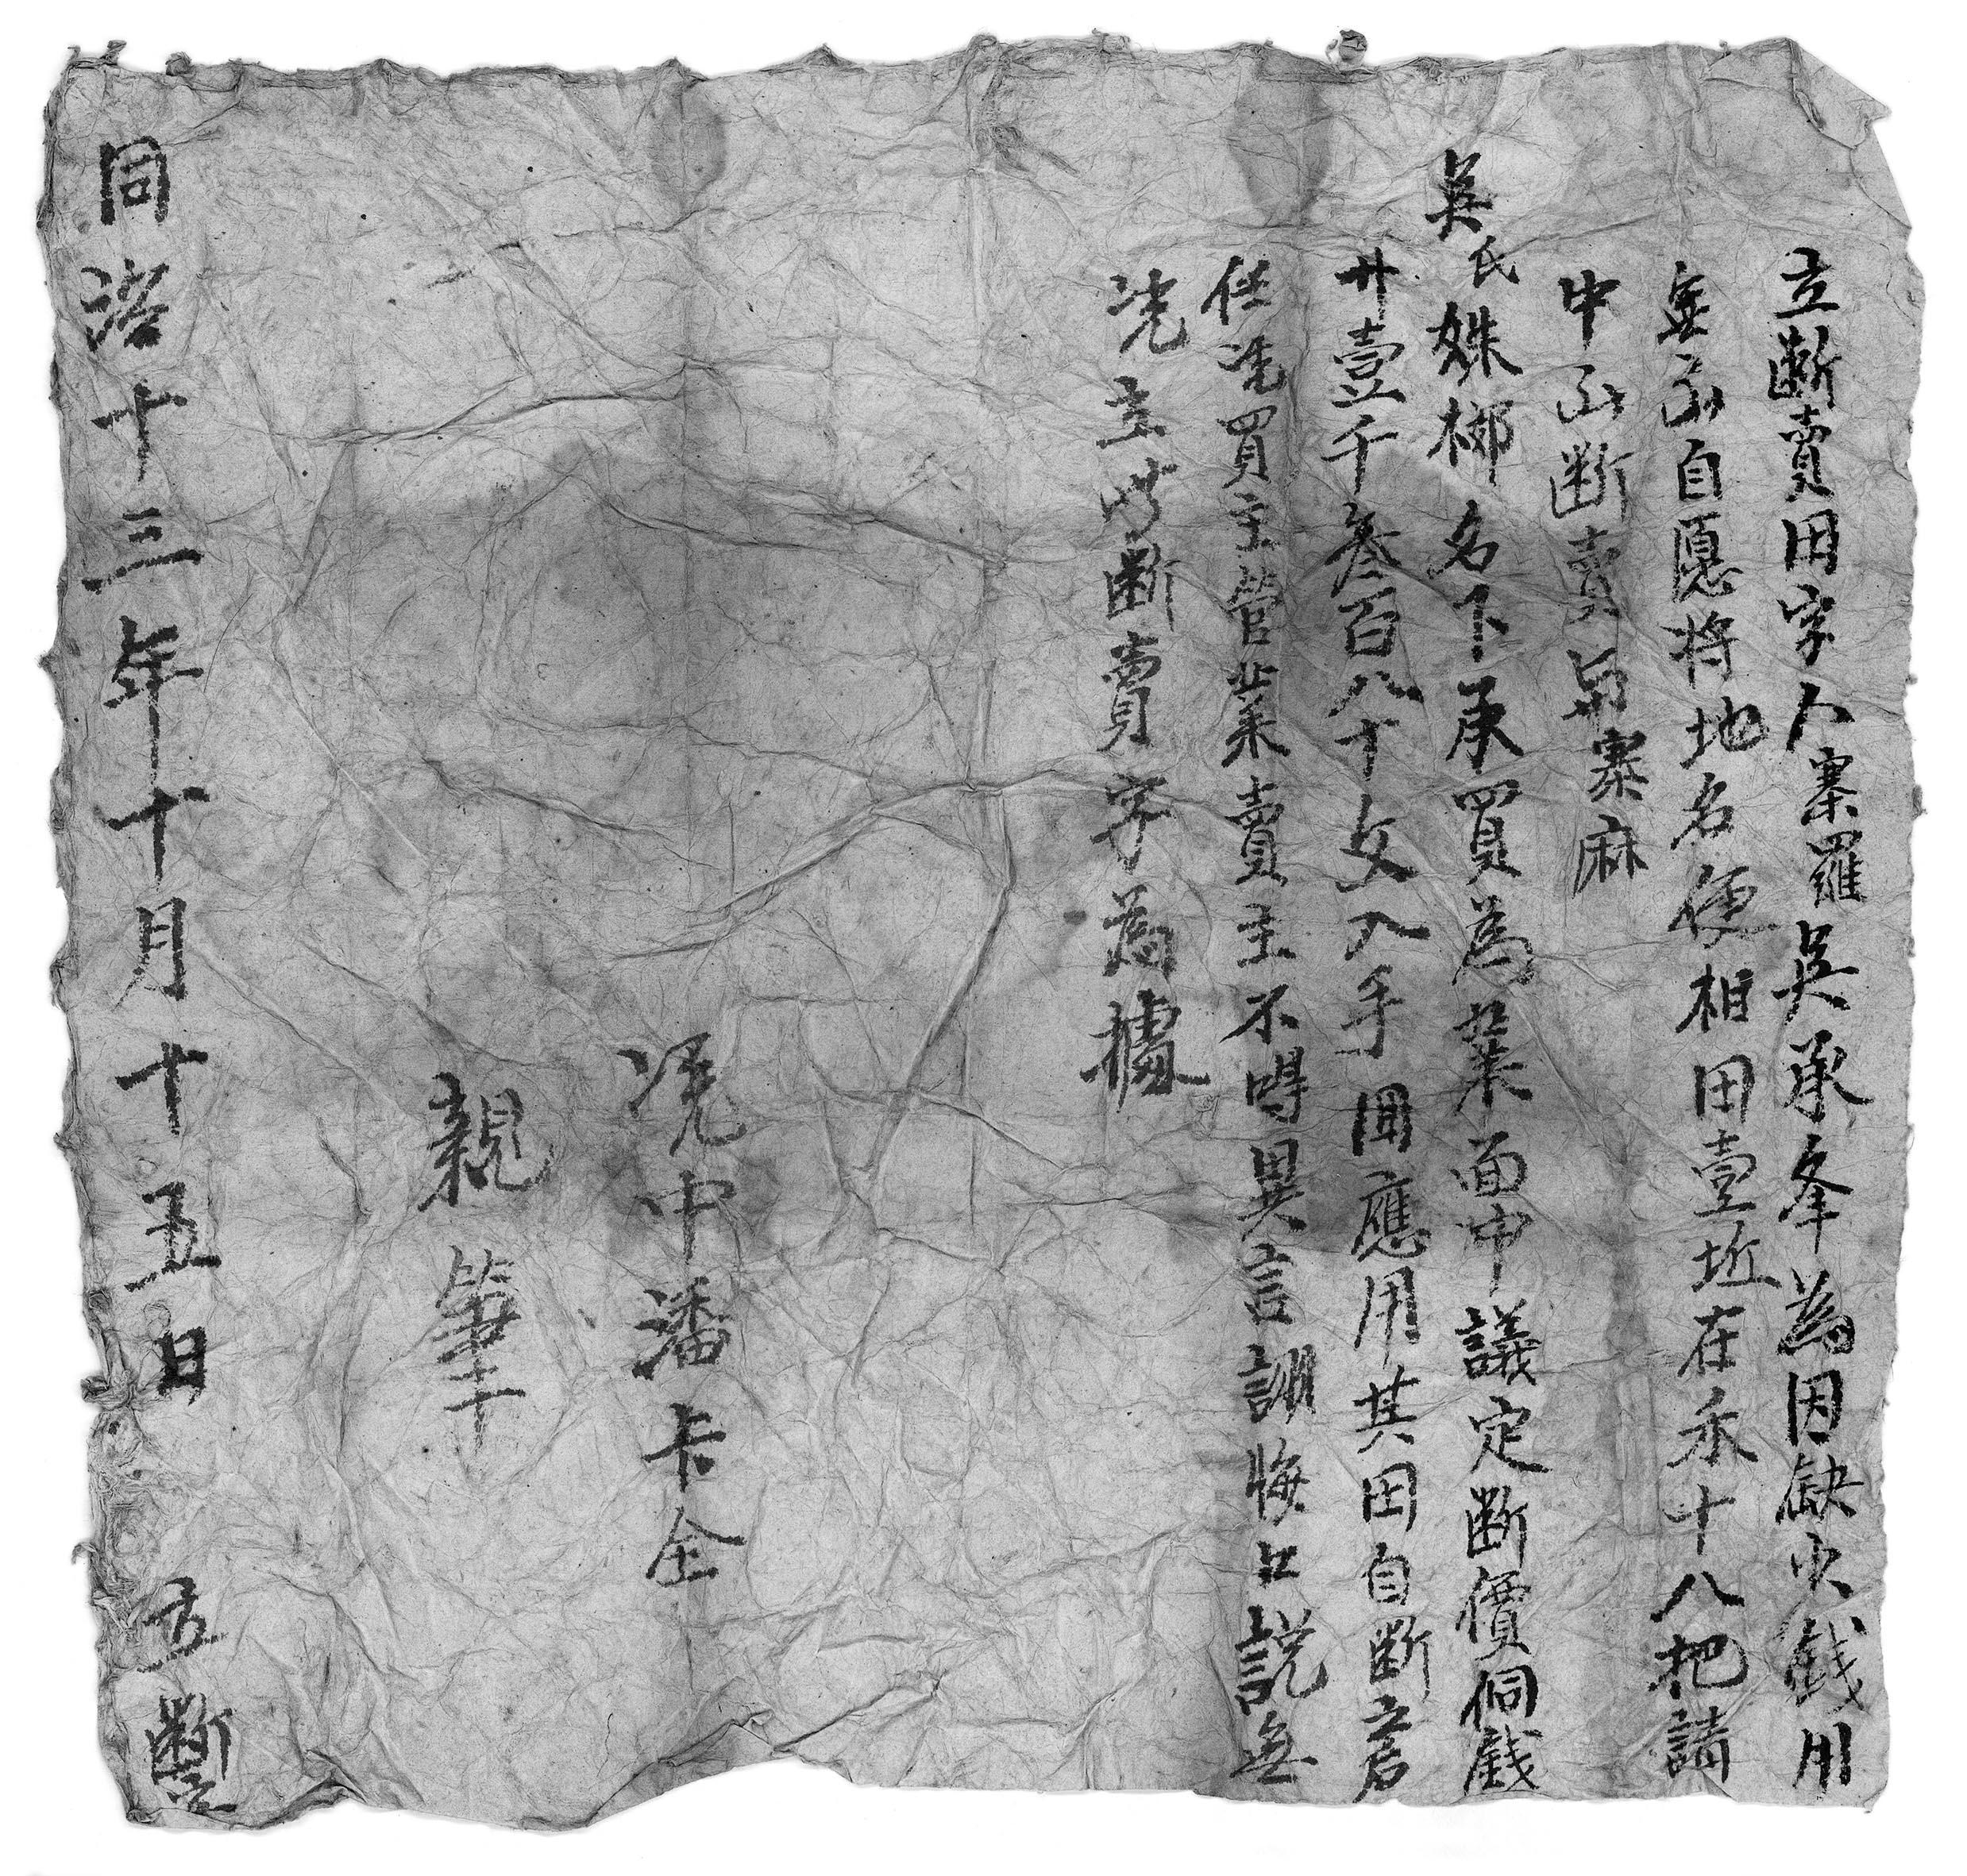 立斷賣田字人寨羅吳承夆為因缺少錢用
無尔自愿将地名便相田壹坵在禾十八把請
中尔斷賣與寨麻
吳氏姝梛名下承買為業面中議定斷價侗錢
廾壹千叁百八十文入手囬應用其田自斷之后
任凴買主管業賣主不得異言翻悔口説無
凴立此斷賣字為據
凴中潘卡全
親筆
同治十三年十月十五日 立斷